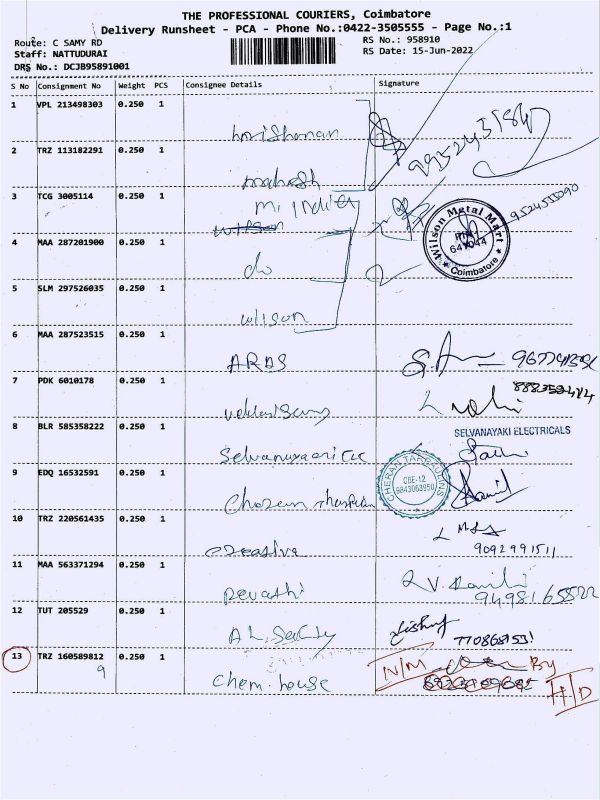 THE PROFESSIONAL COURIERS, Coimbatore
Delivery Runsheet - PCA - Phone No.:0422-3505555 - Page No.:1
Route: C SAMY RD
Staff: NATTUDURAI
DRS No.: DCJB95891001
RS No.: 958910
RS Date: 15-Jun-2022
S No Consignment No Weight PCS Consignee Details Signature
1 VPL 213498303 0.250 1
2 TRZ 113182291 0.250 1
mahesh
3 TCG 3005114 0.250 1
M. India
wilson
Wilson Metal Mart
641044
Coimbatore
4 MAA 287201900 0.250 1
do
5 SLM 297526035 0.250 1
wilson
6 MAA 287523515 0.250 1
ARDS
7 PDK 6010178 0.250 1
8 BLR 585358222 0.250 1
SELVANAYAKI ELECTRICALS
9 EDQ 16532591 0.250 1
CHERAN TARPAULINS
CBE-12
9843063950
10 TRZ 220561435 0.250 1
creative
9092991511
11 MAA 563371294 0.250 1
Revathi
12 TUT 205529 0.250 1
13 TRZ 160589812 0.250 1
9
chem. house
N/M
By
H/D